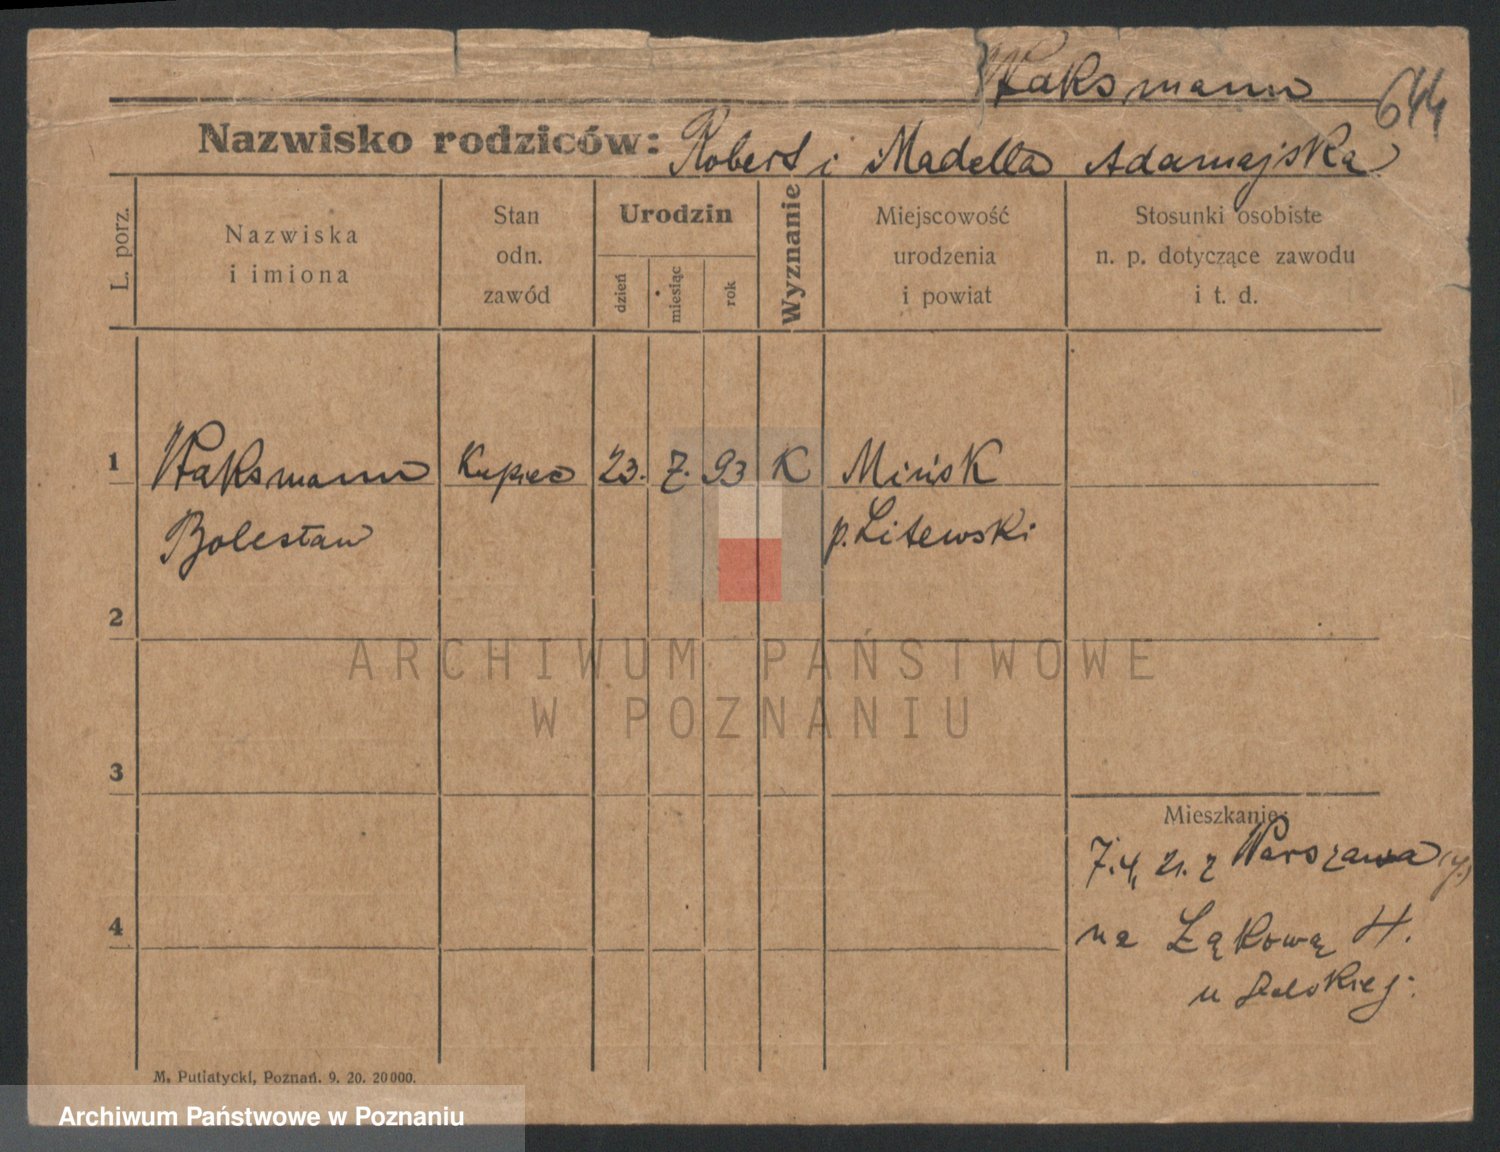 Waksmann
644
Nazwisko rodziców: Robert i Madella Adamajska
L. porz.
Nazwiska
i imiona
Stan
odn.
zawód
Urodzin
dzień
miesiąc
rok
Wyznanie
Miejscowość
urodzenia
i powiat
Stosunki osobiste
n. p. dotyczące zawodu
i t. d.
1 Waksmann Kupiec 23. 7. 93 K Mińsk
Bolesław p. Litewski
2
ARCHIWUM PAŃSTWOWE
W POZNANIU
3
Mieszkanie:
7.4. 21. z Warszawa
4
na Łąkową
u
M. Putiatycki, Poznań. 9. 20. 20000.
Archiwum Państwowe w Poznaniu